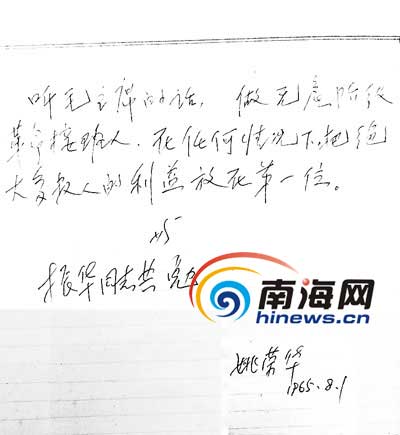 听毛主席的话，做无产阶级
革命接班人。在任何情况下，把绝
大多数人的利益放在第一位。
与
振华同志共勉
南海网
hinews.cn
姚荣华
1965.8.1